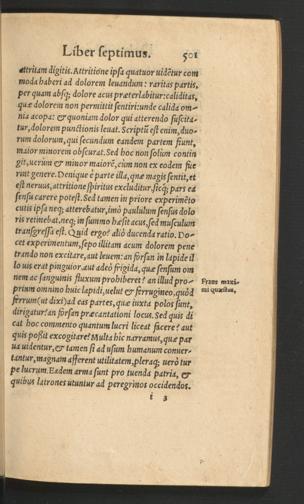 Liber septimus. 501
attritam digitis. Attritione ipsa quatuor uidẽtur com
moda haberi ad dolorem leuandum: raritas partis,
per quam absq; dolore acus præterlabitur: caliditas,
quæ dolorem non permittit sentiri: unde calida om-
nia acopa: & quoniam dolor qui atterendo suscita-
tur, dolorem punctionis leuat. Scriptũ est enim, duo-
rum dolorum, qui secundum eandem partem fiunt,
maior minorem obscurat. Sed hoc non solum contin
git, uerùm & minor maiorẽ, cùm non ex eodem fue
runt genere. Denique è parte illa, quæ magis sentit, et
est neruus, attritione spiritus excluditur. sicq́; pars ea
sensu carere potest. Sed tamen in priore experimẽto
cutis ipsa neq; atterebatur, imò paululum sensus dolo
ris retinebat, neq; in summo hæsit acus, sed musculum
transgressa est. Quid ergo? aliò ducenda ratio. Do-
cet experimentum, sepo illitam acum dolorem pene
trando non excitare, aut leuem: an forsan in lapide il
lo uis erat pinguior aut adeò frigida, quæ sensum om
nem ac sanguinis fluxum prohiberet? an illud pro-
prium omnino huic lapidi, uelut & ferrugineo, quòd
ferrum (ut dixi) ad eas partes, quæ iuxta polos sunt,
dirigatur? an forsan præcantationi locus. Sed quis di
cat hoc commento quantum lucri liceat facere? aut
quis possit excogitare? Multa hic narramus, quæ par
ua uidentur, & tamen si ad usum humanum conuer-
tantur, magnam afferent utilitatem, pleraq; uerò tur
pe lucrum. Eadem arma sunt pro tuenda patria, &
quibus latrones utuntur ad peregrinos occidendos.
Fraus maxi-
mi quæstus.
i 3